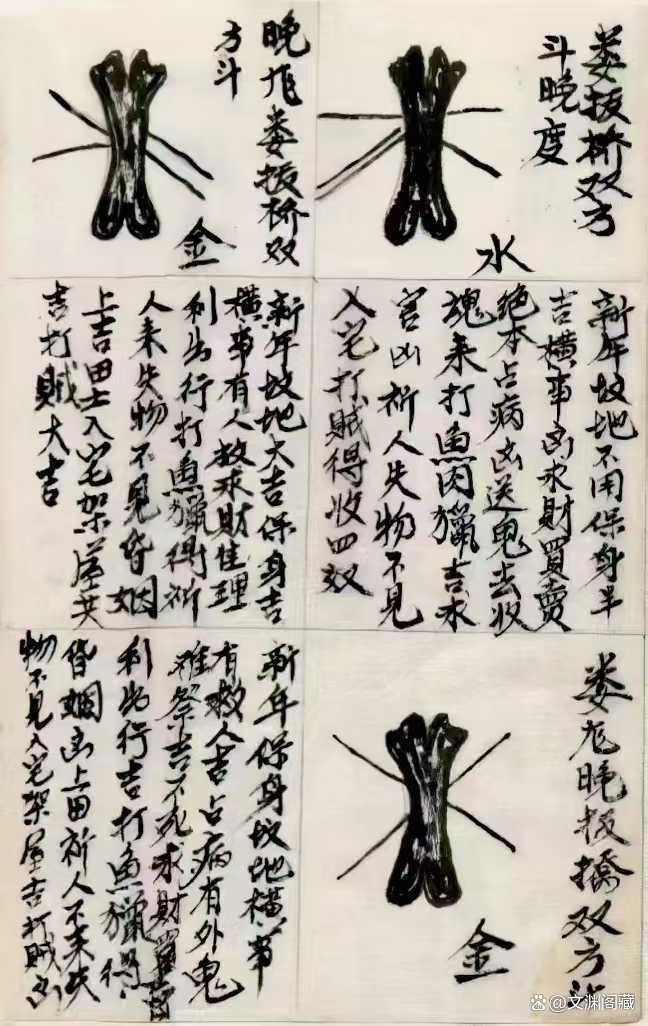 娄扳桥双方
斗晚度
水
晚娄扳桥双
方斗
金
新年坟地不用保身半
吉横事凶求财買卖
绝本占病凶送鬼去收
魂来打魚肉獵吉水
官凶祈人失物不见
入宅打贼得收四效
新年坟地大吉保身吉
横事有人救求财佳理
利出行打魚獵得祈
人来失物不见昏姻
上吉田土入宅架屋共
吉打贼大吉
娄晚扳橋双方斗
金
新年保身坟地横事
有救人吉占病有外鬼
难祭吉不死求财買
利出行吉打魚獵得
昏姻凶上田祈人不来失
物不见入宅架屋吉打贼凶
@文渊阁藏